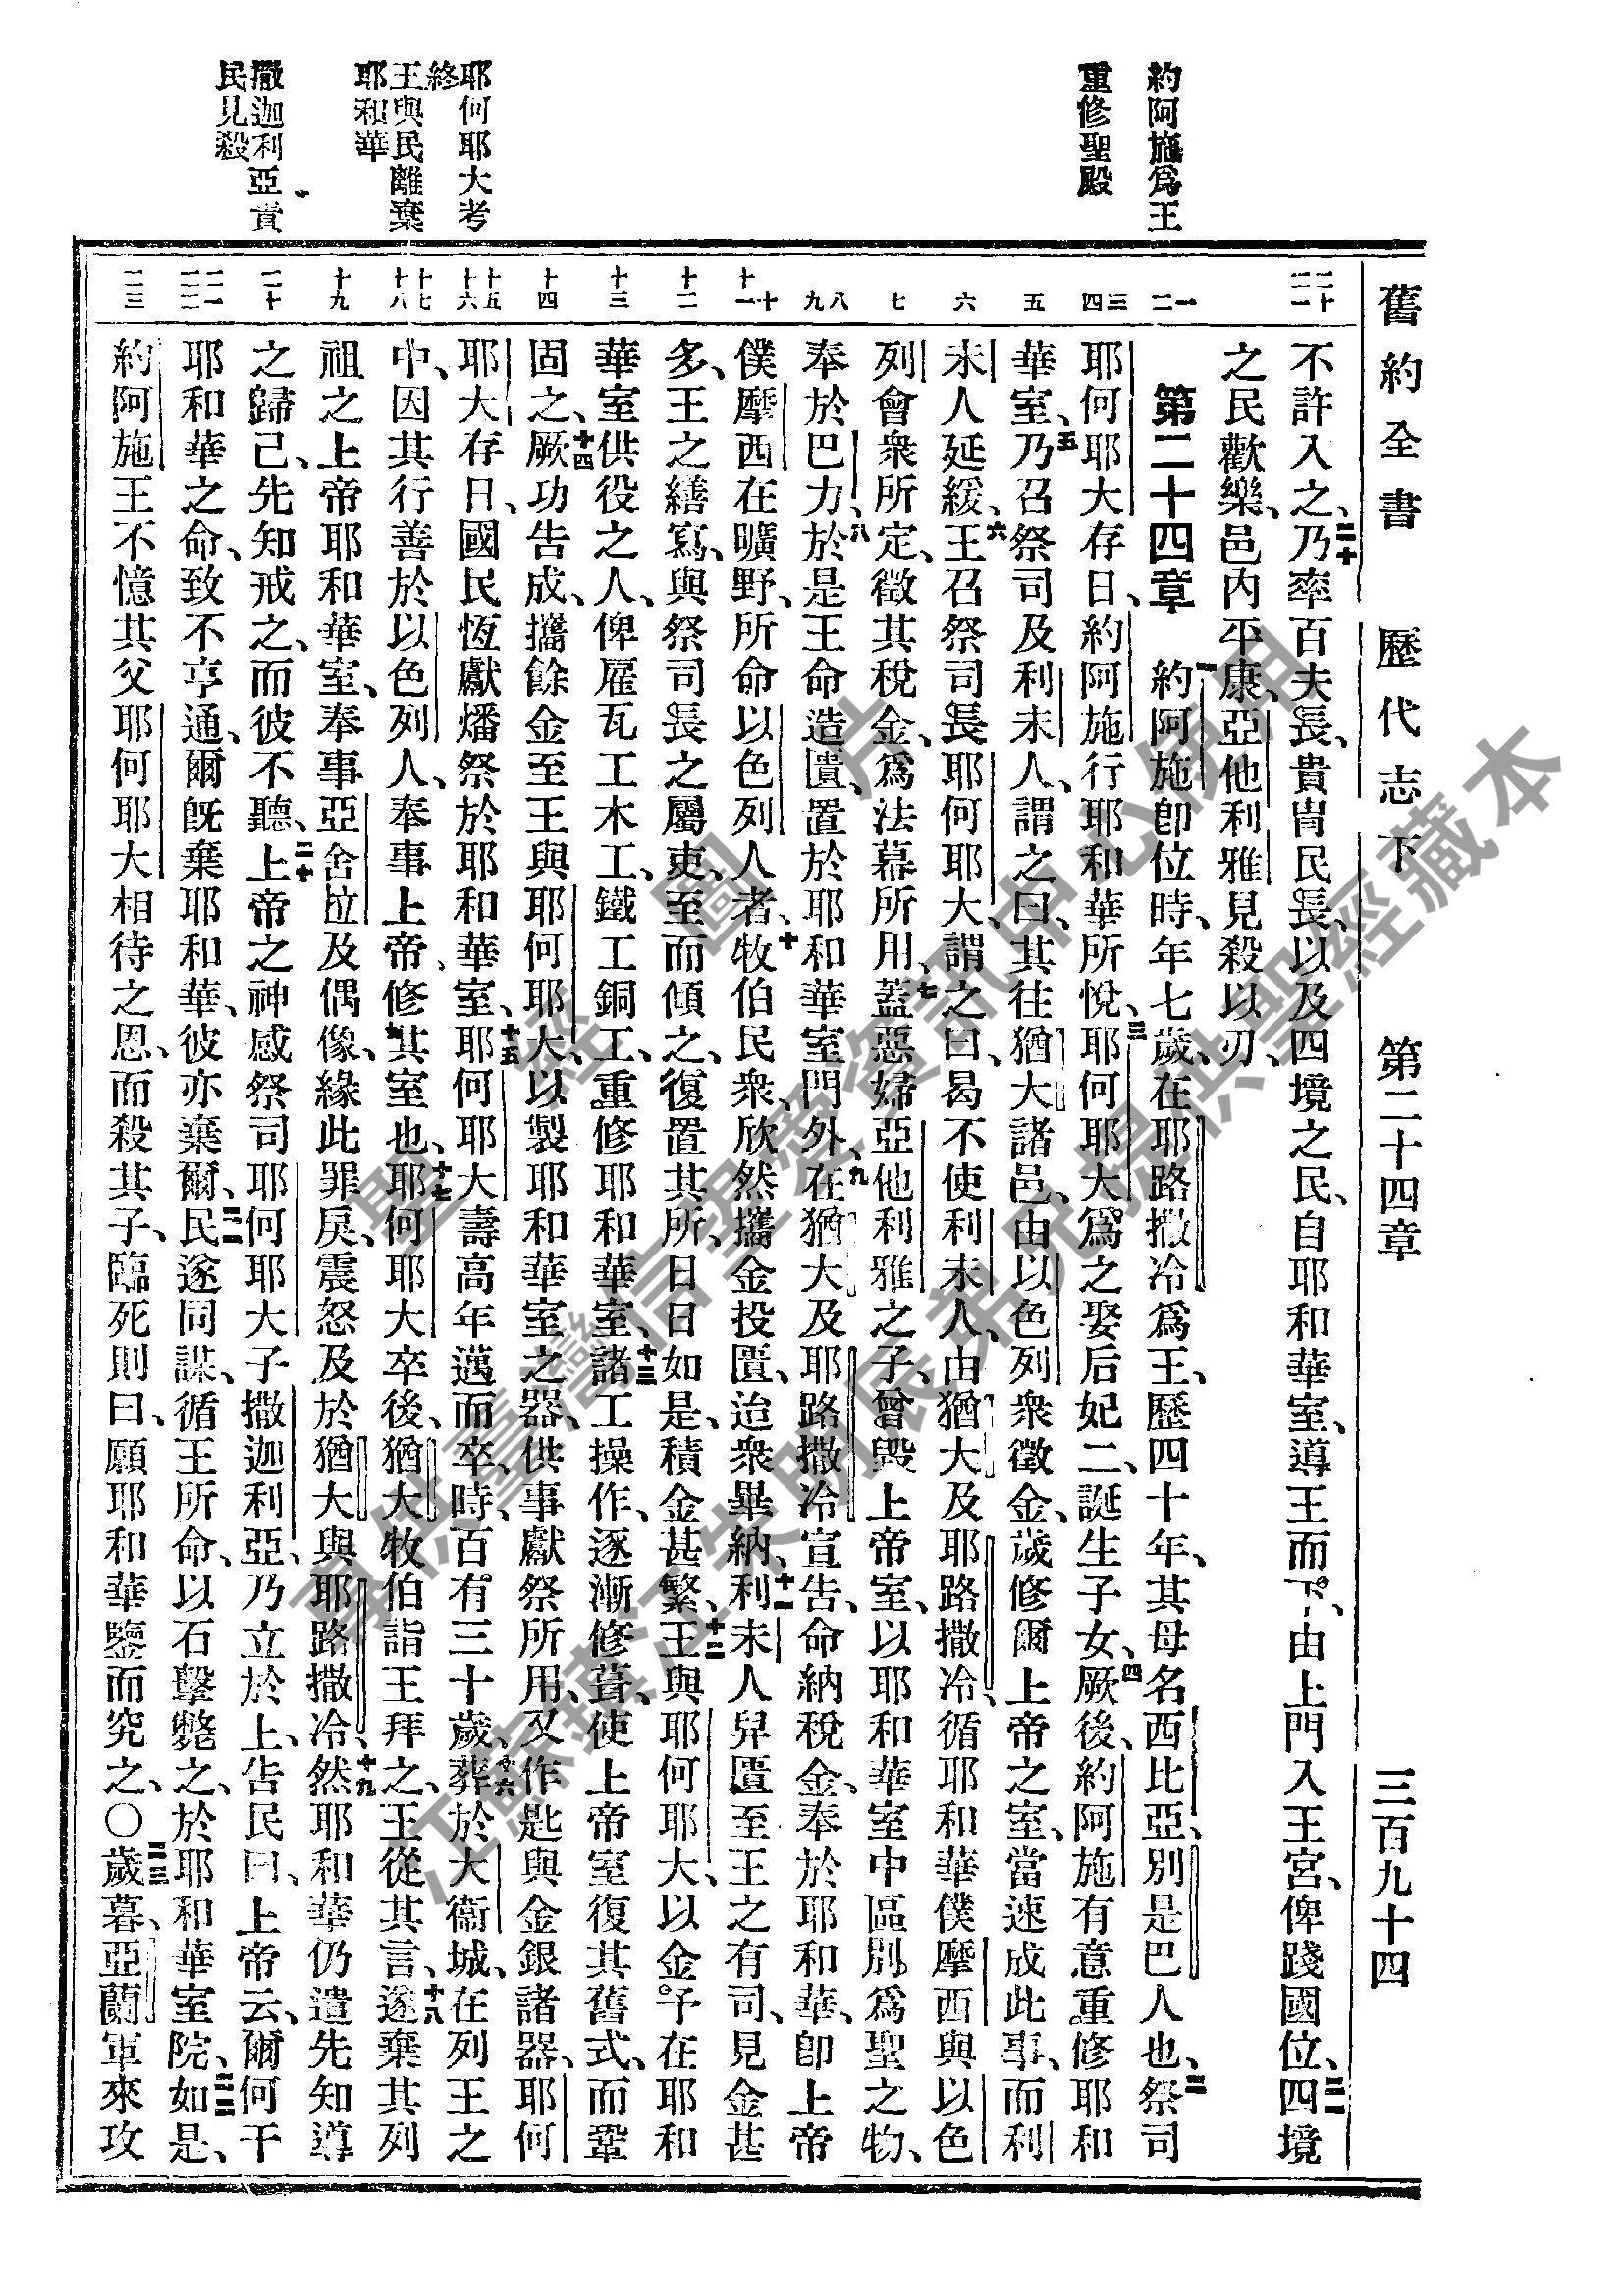 舊約全書 歷代志下 第二十四章 三百九十四
約阿施爲王
重修聖殿
耶何耶大考
終
王與民離棄
耶和華
撒迦利亞責
民見殺
二十 二一
一 二
三 四
五
六
七
八 九
十 十一
十二
十三
十四
十五 十六
十七 十八
十九
二十
二一 二二
二三
不許入之、二十乃率百夫長、貴冑民長、以及四境之民、自耶和華室、導王而下、由上門入王宮、俾踐國位、二一四境
之民歡樂、邑内平康、亞他利雅見殺以刃、
第二十四章 一約阿施卽位時、年七歲、在耶路撒冷爲王、歷四十年、其母名西比亞、別是巴人也、二祭司
耶何耶大存日、約阿施行耶和華所悅、三耶何耶大爲之娶后妃二、誕生子女、四厥後、約阿施有意重修耶和
華室、五乃召祭司及利未人、謂之曰、其往猶大諸邑、由以色列衆徵金、歲修爾上帝之室、當速成此事、而利
未人延緩、六王召祭司長耶何耶大、謂之曰、曷不使利未人、由猶大及耶路撒冷、循耶和華僕摩西與以色
列會衆所定、徵其稅金、爲法幕所用、七蓋惡婦亞他利雅之子、曾毀上帝室、以耶和華室中區別爲聖之物、
奉於巴力、八於是王命造匱、置於耶和華室門外、九在猶大及耶路撒冷宣告、命納稅金、奉於耶和華、卽上帝
僕摩西在曠野、所命以色列人者、十牧伯民衆、欣然攜金投匱、迨衆畢納、十一利未人舁匱至王之有司、見金甚
多、王之繕寫、與祭司長之屬吏、至而傾之、復置其所、日日如是、積金甚繁、十二王與耶何耶大、以金予在耶和
華室供役之人、俾雇瓦工木工、鐵工銅工、重修耶和華室、十三諸工操作、逐漸修葺、使上帝室復其舊式、而鞏
固之、十四厥功告成、攜餘金至王與耶何耶大、以製耶和華室之器、供事獻祭所用、又作匙與金銀諸器、耶何
耶大存日、國民恆獻燔祭於耶和華室、十五耶何耶大壽高年邁而卒、時、百有三十歲、十六葬於大衞城、在列王之
中、因其行善於以色列人、奉事上帝、修其室也、十七耶何耶大卒後、猶大牧伯詣王拜之、王從其言、十八遂棄其列
祖之上帝耶和華室、奉事亞舍拉及偶像、緣此罪戾、震怒及於猶大與耶路撒冷、十九然耶和華仍遣先知導
之歸己、先知戒之、而彼不聽、二十上帝之神感祭司耶何耶大子撒迦利亞、乃立於上、告民曰、上帝云、爾何干
耶和華之命、致不亨通、爾旣棄耶和華、彼亦棄爾、二一民遂同謀、循王所命、以石擊斃之、於耶和華室院、二二如是、
約阿施王不憶其父耶何耶大相待之恩、而殺其子、臨死則曰、願耶和華鑒而究之、○二三歲暮、亞蘭軍來攻
聖經圖片
專供臺灣信望愛資訊中心使用
江蘇鎮江朱明展弟兄提供聖經藏本